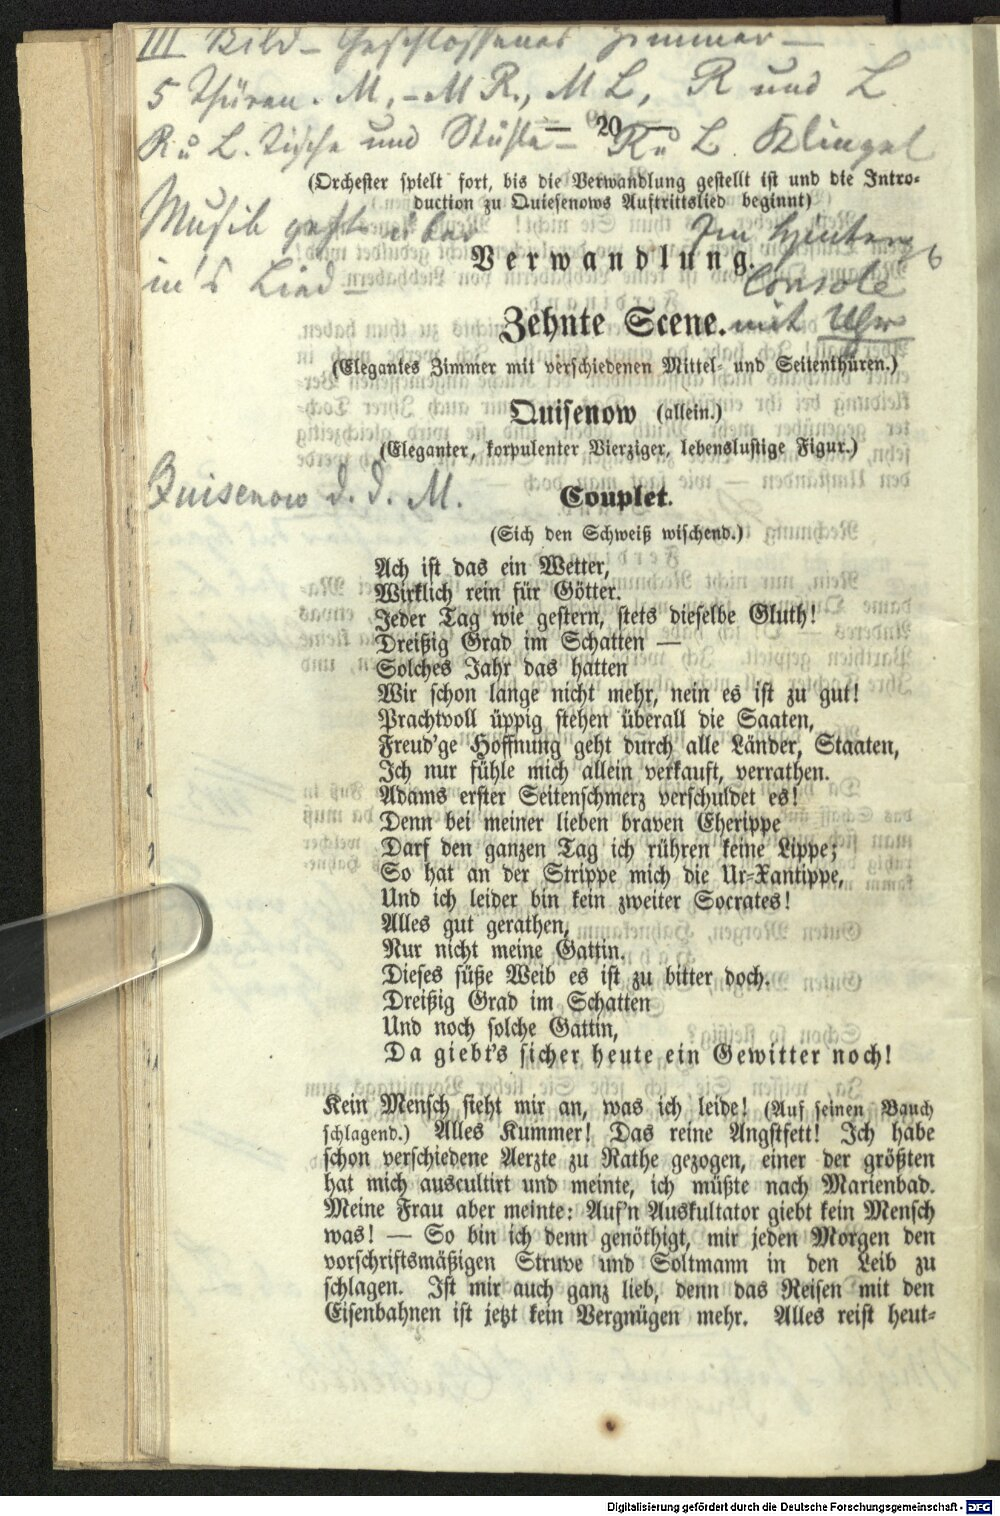 III Bild – Geschlossenes Zimmer –
5 Thüren. M., – M R., M L, R und L
R u L. Tische und Stühle – R u L Klingel
20
(Orchester spielt fort, bis die Verwandlung gestellt ist und die Intro-
duction zu Quiesenows Auftrittslied beginnt)
Musik geht über
in's Lied –
Im Hinterg
Console
mit Uhr
Verwandlung.
Zehnte Scene.
(Elegantes Zimmer mit verschiedenen Mittel- und Seitenthüren.)
Quisenow (allein.)
(Eleganter, korpulenter Vierziger, lebenslustige Figur.)
Quisenow d. d. M.
Couplet.
(Sich den Schweiß wischend.)
Ach ist das ein Wetter,
Wirklich rein für Götter.
Jeder Tag wie gestern, stets dieselbe Gluth!
Dreißig Grad im Schatten —
Solches Jahr das hatten
Wir schon lange nicht mehr, nein es ist zu gut!
Prachtvoll üppig stehen überall die Saaten,
Freud'ge Hoffnung geht durch alle Länder, Staaten,
Ich nur fühle mich allein verkauft, verrathen.
Adams erster Seitenschmerz verschuldet es!
Denn bei meiner lieben braven Eherippe
Darf den ganzen Tag ich rühren keine Lippe;
So hat an der Strippe mich die Ur-Xantippe,
Und ich leider bin kein zweiter Socrates!
Alles gut gerathen,
Nur nicht meine Gattin.
Dieses süße Weib es ist zu bitter doch.
Dreißig Grad im Schatten
Und noch solche Gattin,
Da giebt's sicher heute ein Gewitter noch!
Kein Mensch sieht mir an, was ich leide! (Auf seinen Bauch
schlagend.) Alles Kummer! Das reine Angstfett! Ich habe
schon verschiedene Aerzte zu Rathe gezogen, einer der größten
hat mich auscultirt und meinte, ich müßte nach Marienbad.
Meine Frau aber meinte: Auf'n Auskultator giebt kein Mensch
was! — So bin ich denn genöthigt, mir jeden Morgen den
vorschriftsmäßigen Struve und Soltmann in den Leib zu
schlagen. Ist mir auch ganz lieb, denn das Reisen mit den
Eisenbahnen ist jetzt kein Vergnügen mehr. Alles reist heut-
Digitalisierung gefördert durch die Deutsche Forschungsgemeinschaft - DFG